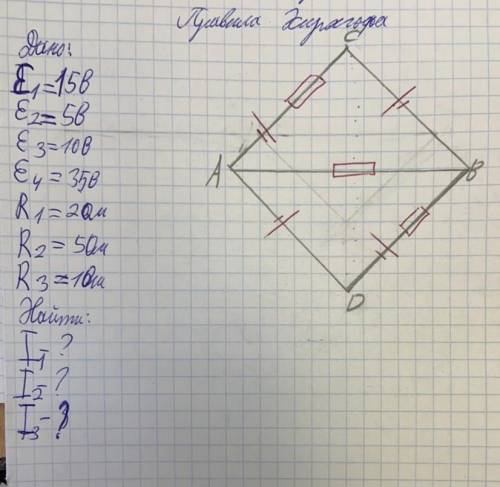 Правила Кирхгофа
Дано:
Ɛ1=15В
Ɛ2=5В
Ɛ3=10В
Ɛ4=35В
R1=2Ом
R2=5Ом
R3=10м
Найти:
I1-?
I2-?
I3-?
C
A
B
D